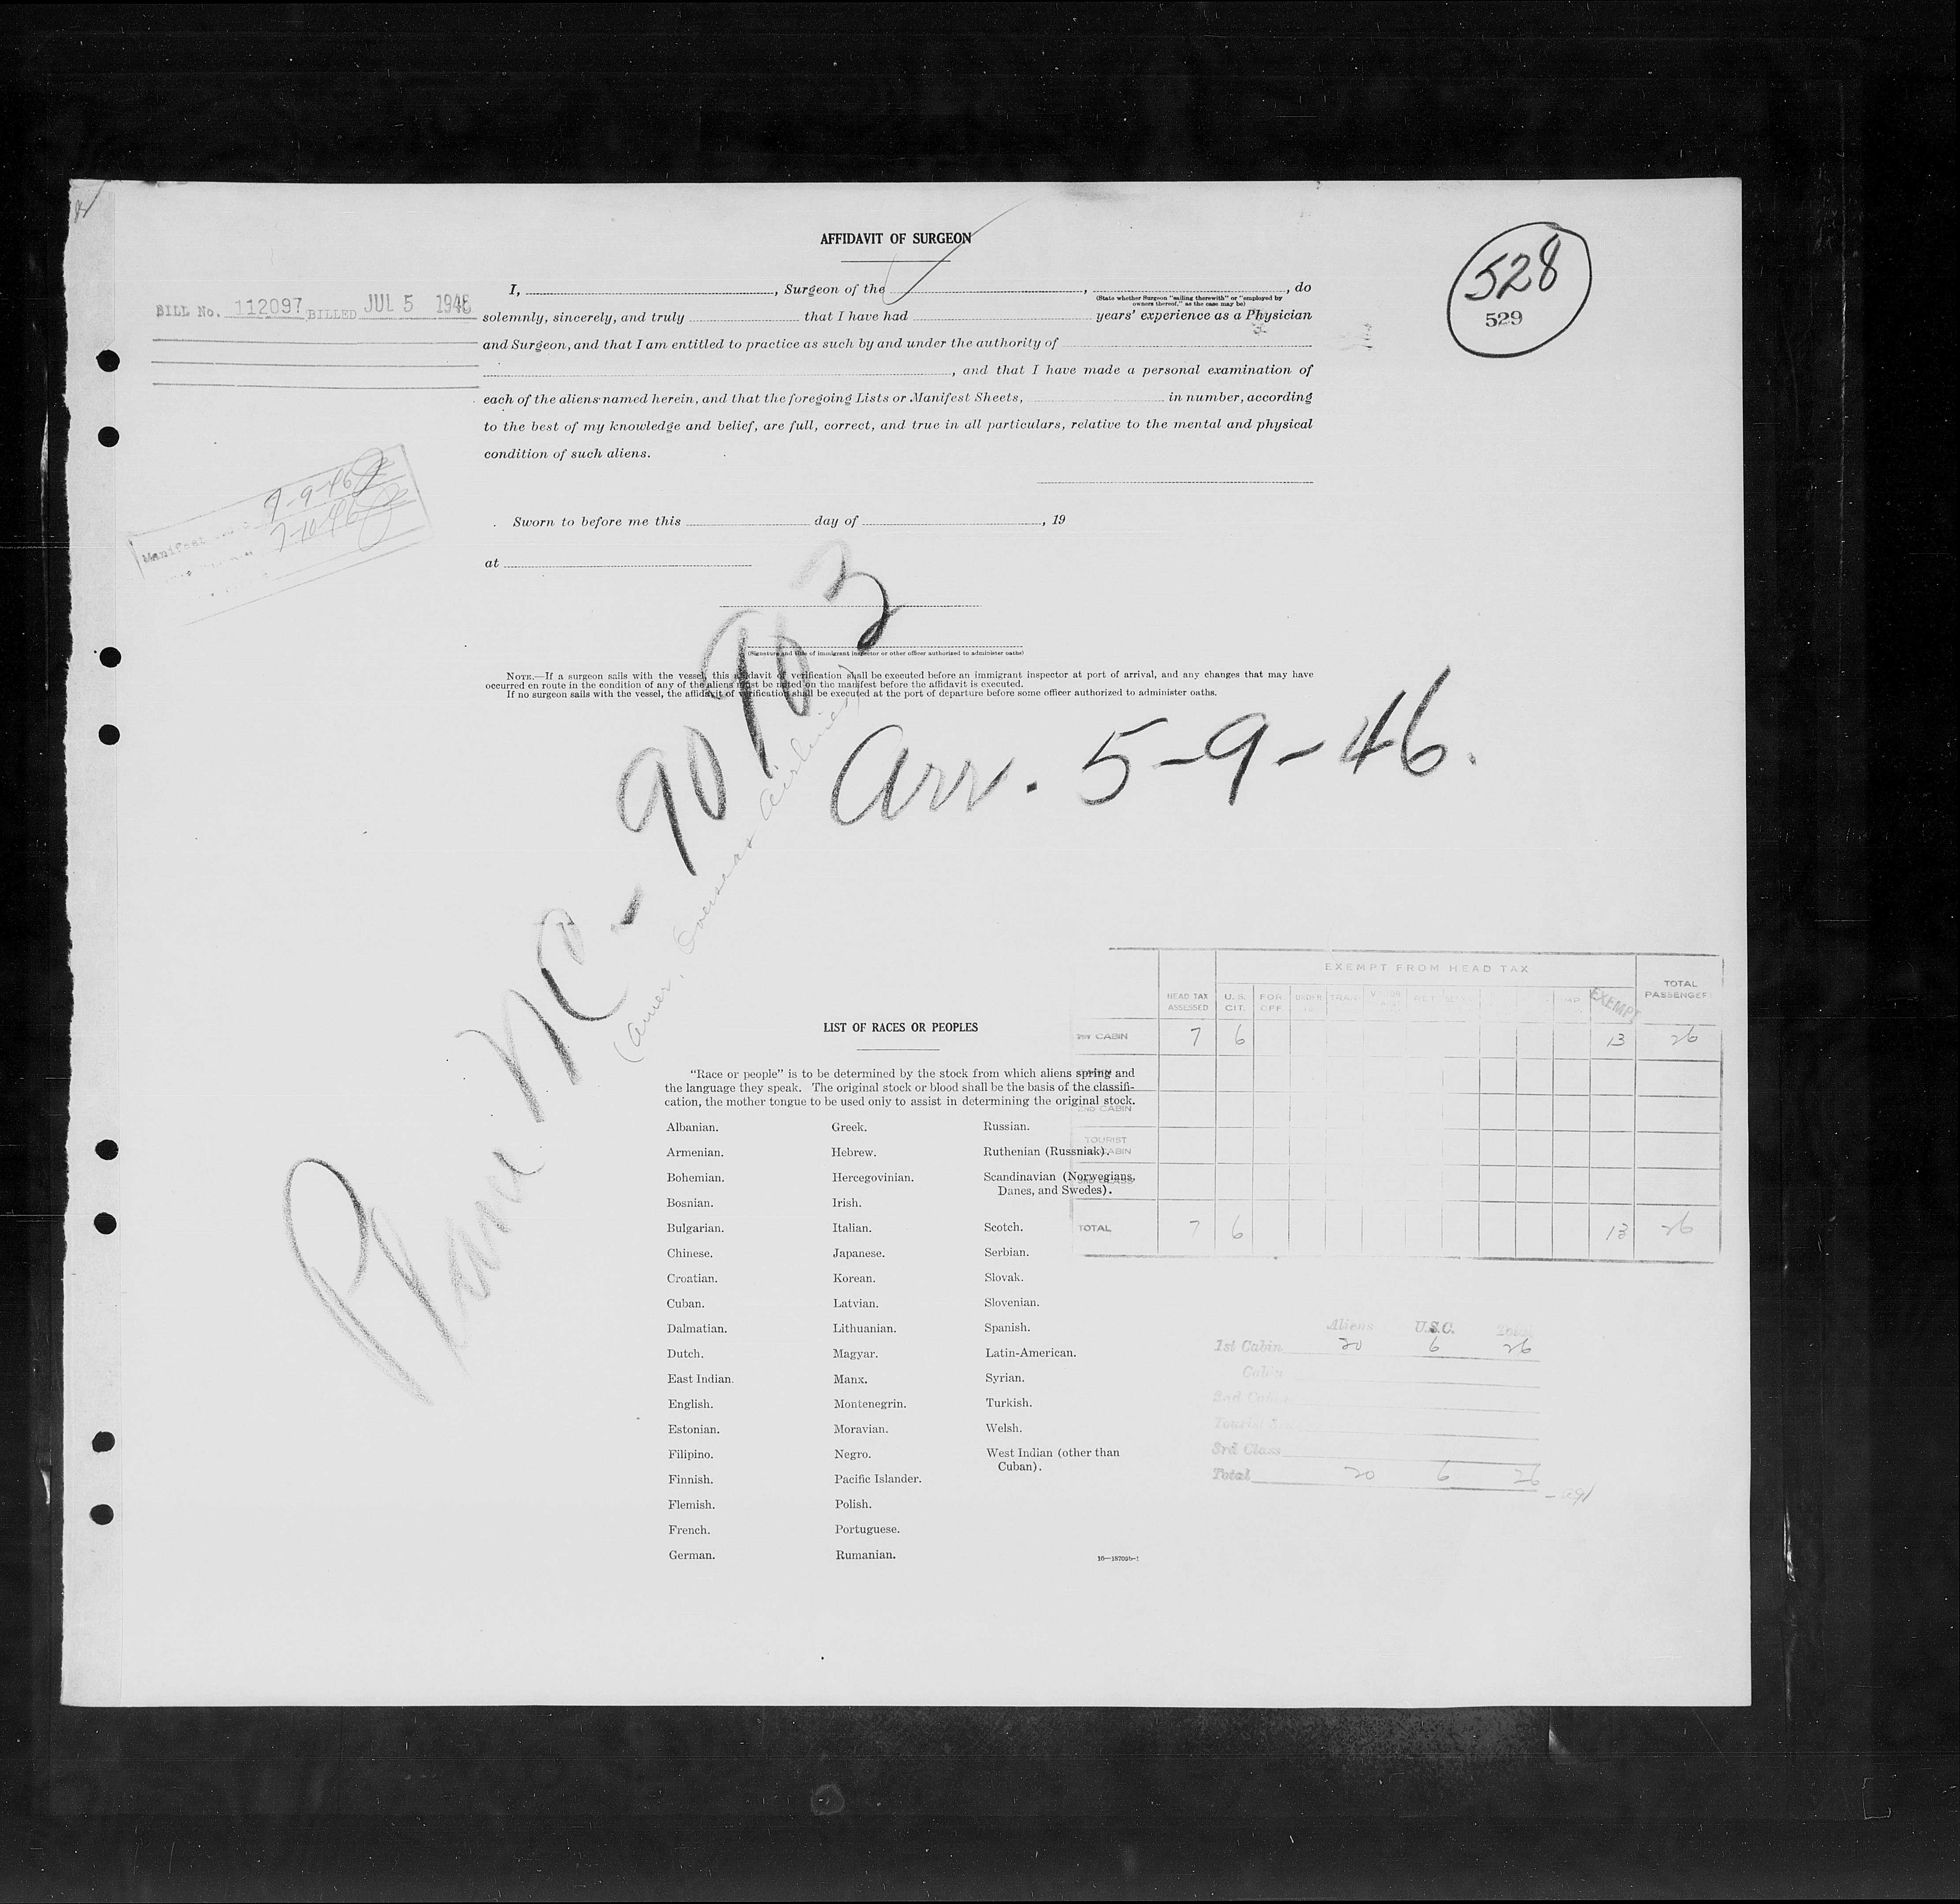 AFFIDAVIT OF SURGEON
528
529
BILL No. 112097 BILLED JUL 5 1946
I, , Surgeon of the , , do
(State whether Surgeon "sailing therewith" or "employed by
owners thereof," as the case may be)
solemnly, sincerely, and truly that I have had years' experience as a Physician
and Surgeon, and that I am entitled to practice as such by and under the authority of
, and that I have made a personal examination of
each of the aliens named herein, and that the foregoing Lists or Manifest Sheets, in number, according
to the best of my knowledge and belief, are full, correct, and true in all particulars, relative to the mental and physical
condition of such aliens.
Manifest
7-10-46
Sworn to before me this day of , 19
at
(Signature and title of immigrant inspector or other officer authorized to administer oaths)
NOTE.—If a surgeon sails with the vessel, this affidavit of verification shall be executed before an immigrant inspector at port of arrival, and any changes that may have
occurred en route in the condition of any of the aliens must be noted on the manifest before the affidavit is executed.
If no surgeon sails with the vessel, the affidavit of verification shall be executed at the port of departure before some officer authorized to administer oaths.
Plane NC-90903
(Amer. Overseas Airlines)
Arr. 5-9-46.
EXEMPT FROM HEAD TAX
HEAD TAX ASSESSED U.S. CIT. FOR. OFF. UNDER TRAN. EXEMPT TOTAL PASSENGER
CABIN 7 6 13 26
2ND CABIN
TOURIST
CABIN
TOTAL 7 6 13 26
LIST OF RACES OR PEOPLES
"Race or people" is to be determined by the stock from which aliens spring and
the language they speak. The original stock or blood shall be the basis of the classifi-
cation, the mother tongue to be used only to assist in determining the original stock.
Albanian.
Armenian.
Bohemian.
Bosnian.
Bulgarian.
Chinese.
Croatian.
Cuban.
Dalmatian.
Dutch.
East Indian.
English.
Estonian.
Filipino.
Finnish.
Flemish.
French.
German.
Greek.
Hebrew.
Hercegovinian.
Irish.
Italian.
Japanese.
Korean.
Latvian.
Lithuanian.
Magyar.
Manx.
Montenegrin.
Moravian.
Negro.
Pacific Islander.
Polish.
Portuguese.
Rumanian.
Russian.
Ruthenian (Russniak).
Scandinavian (Norwegians,
Danes, and Swedes).
Scotch.
Serbian.
Slovak.
Slovenian.
Spanish.
Latin-American.
Syrian.
Turkish.
Welsh.
West Indian (other than
Cuban).
Aliens U.S.C. Total
1st Cabin 20 6 26
Cabin
2nd Cabin
Tourist
3rd Class
Total 20 6 26